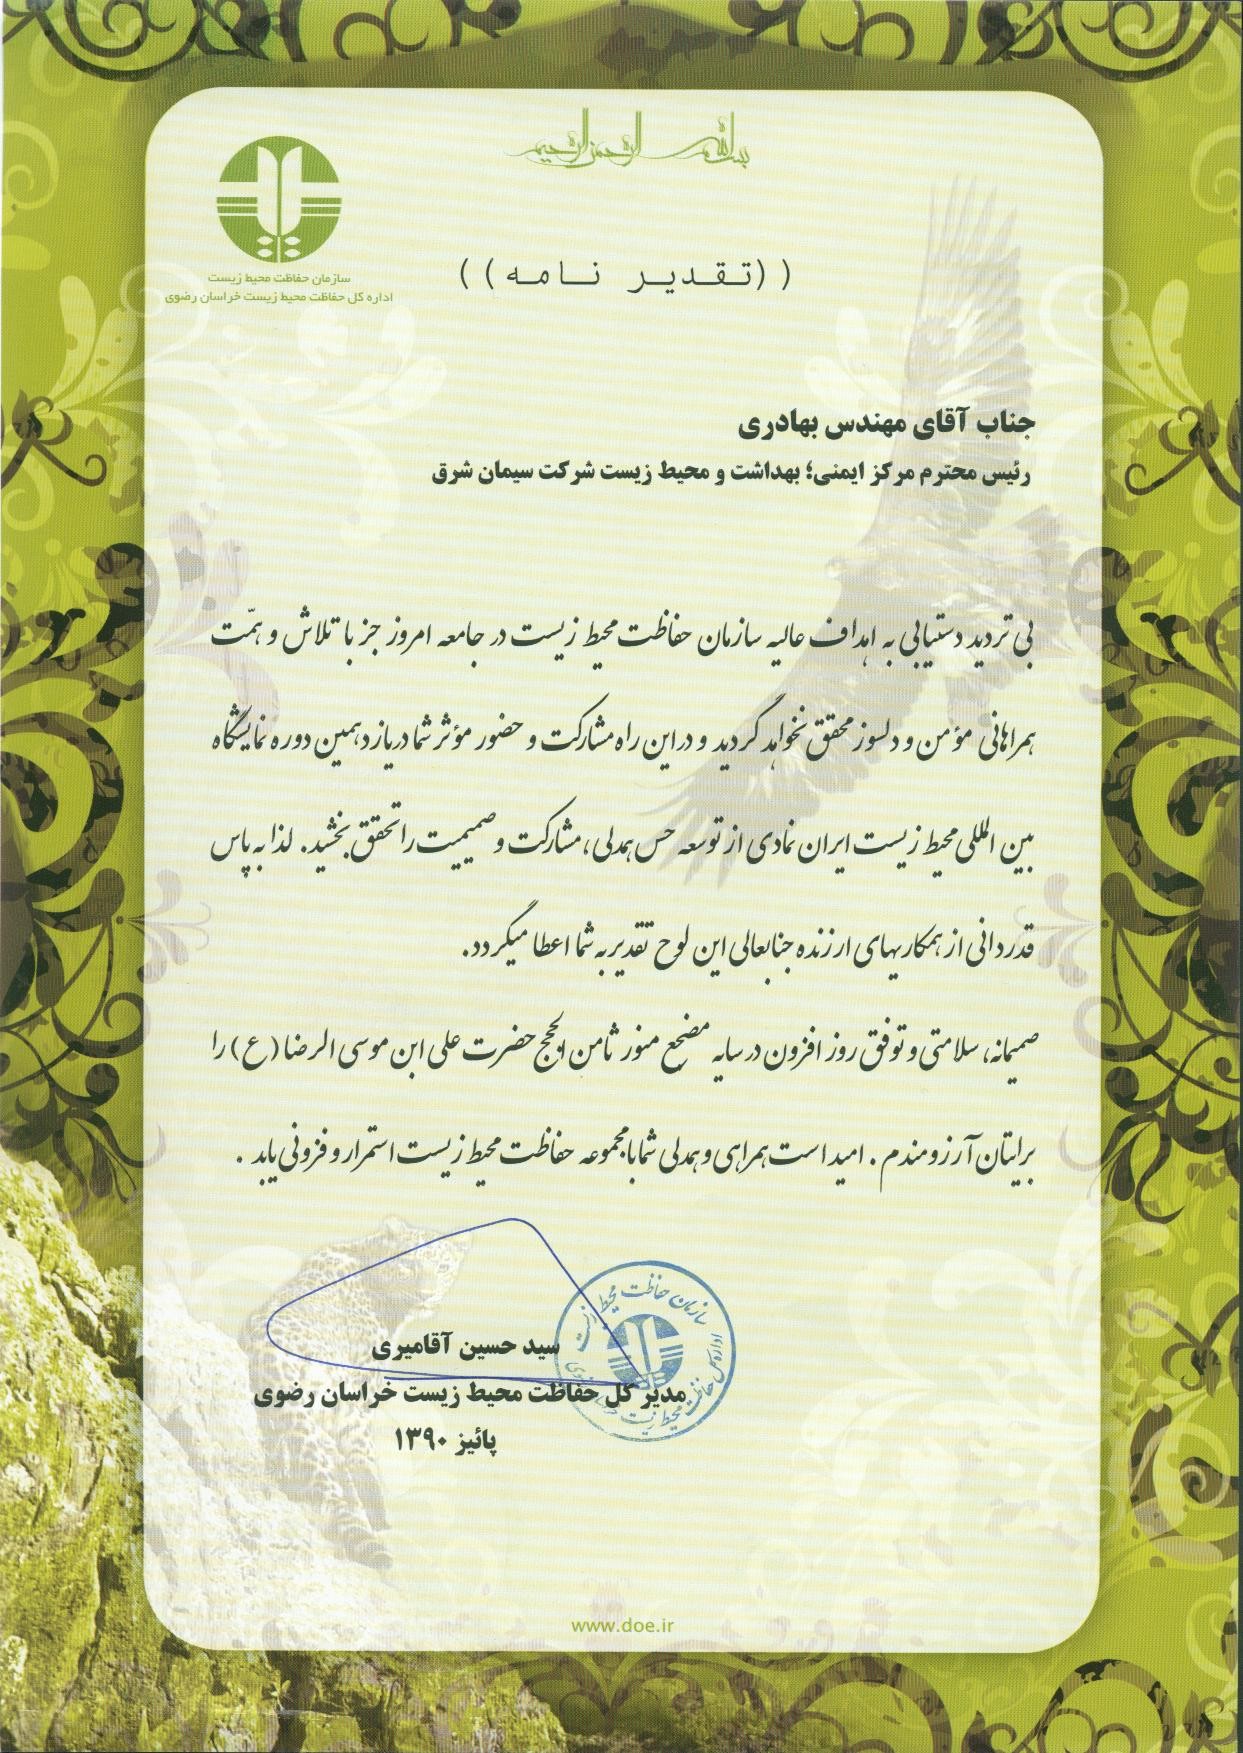 بسم الله الرحمن الرحیم
سازمان حفاظت محیط زیست
اداره کل حفاظت محیط زیست خراسان رضوی
((تقدیر نامه))
جناب آقای مهندس بهادری
رئیس محترم مرکز ایمنی؛ بهداشت و محیط زیست شرکت سیمان شرق
بی تردید دستیابی به اهداف عالیه سازمان حفاظت محیط زیست در جامعه امروز جز با تلاش و همّت
همراهانی مؤمن و دلسوز محقق نخواهد گردید و در این راه مشارکت و حضور مؤثر شما در یازدهمین دوره نمایشگاه
بین المللی محیط زیست ایران نمادی از توسعه حس همدلی، مشارکت و صمیمیت را تحقق بخشید. لذا به پاس
قدردانی از همکاریهای ارزنده جنابعالی این لوح تقدیر به شما اعطا میگردد.
صمیمانه، سلامتی و توفق روز افزون در سایه مضجع منور ثامن الحجج حضرت علی ابن موسی الرضا (ع) را
برایتان آرزومندم. امید است همراهی و همدلی شما با مجموعه حفاظت محیط زیست استمرار و فزونی یابد.
سازمان حفاظت محیط زیست
اداره کل حفاظت محیط زیست
سید حسین آقامیری
مدیر کل حفاظت محیط زیست خراسان رضوی
پائیز ۱۳۹۰
www.doe.ir